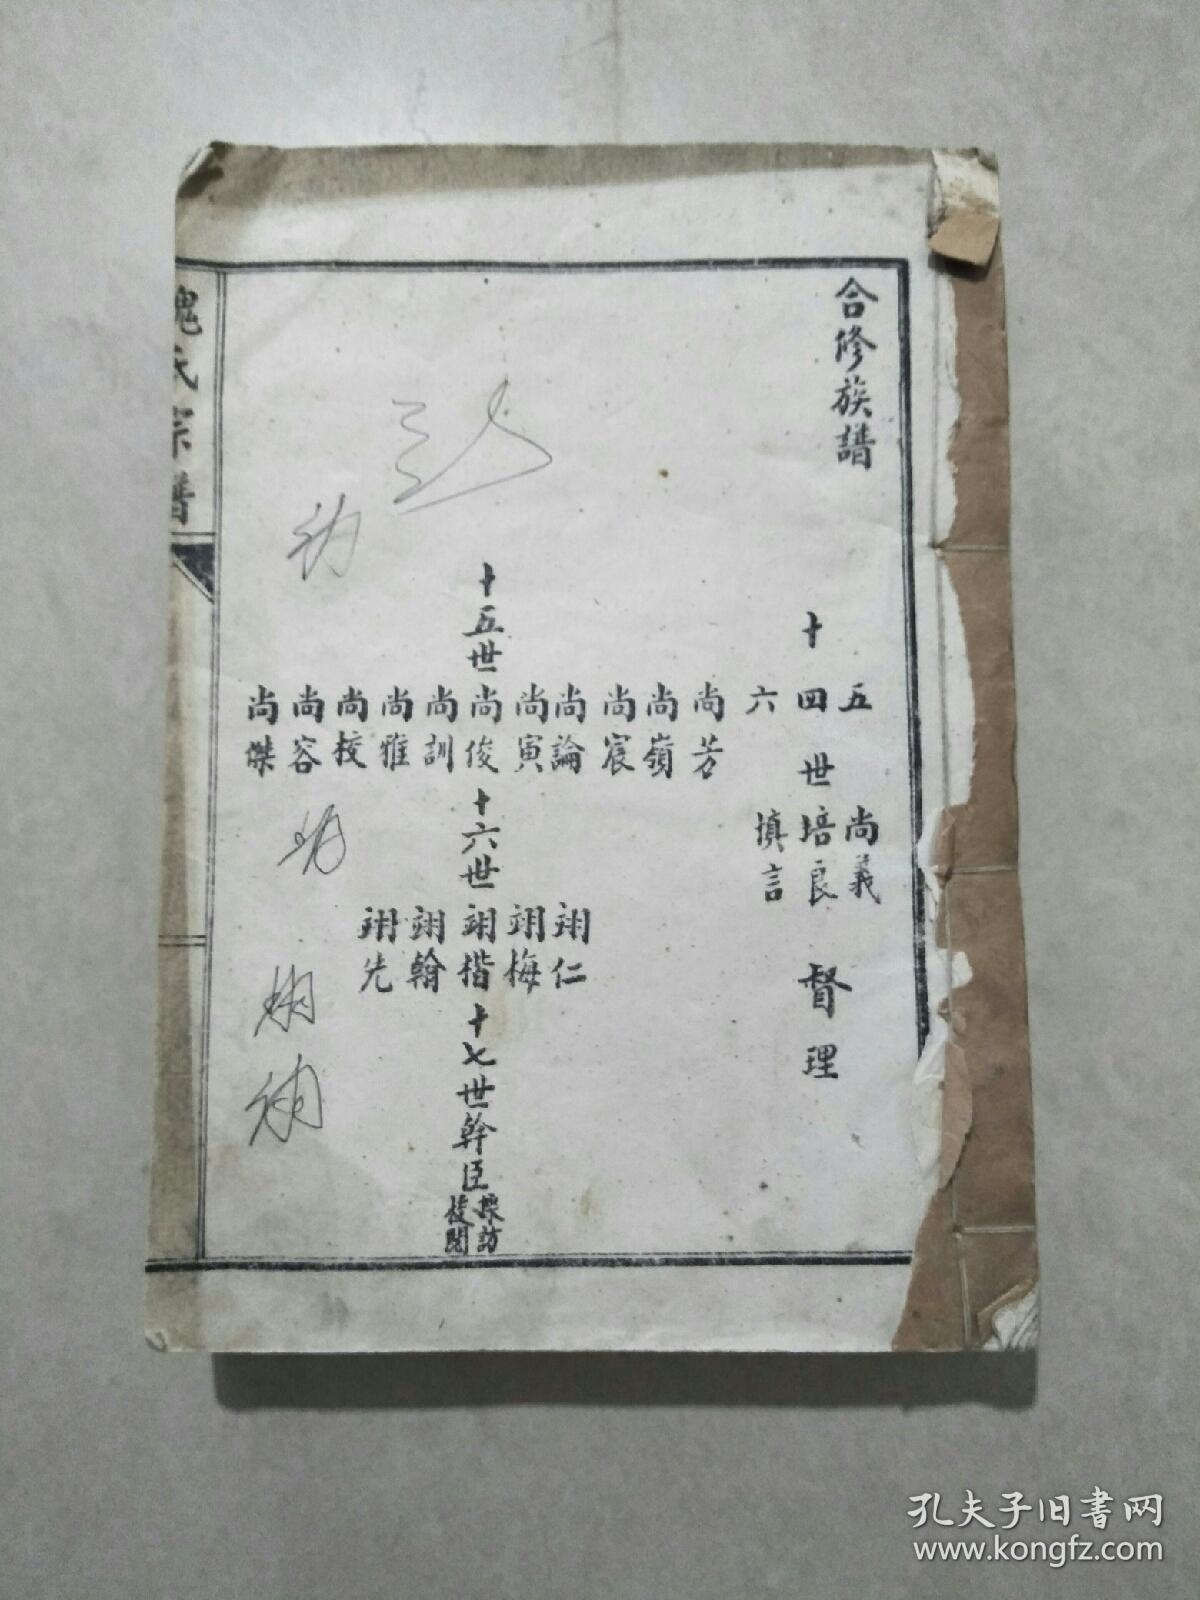 合修族譜
五 尚義
十四世培良 督理
六 慎言
尚芳
尚嶺
尚宸
尚論
尚寅
十五世
尚俊
尚訓
尚雅
尚校
尚容
尚傑
十六世
翊仁
翊梅
翊楷
翊翰
翊先
十七世幹臣
採訪
校閱
氏宗譜
孔夫子旧书网
www.kongfz.com